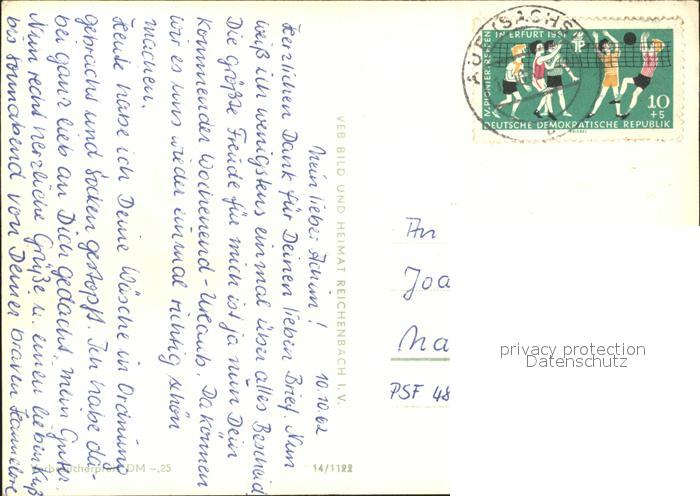 10.10.62
Mein lieber Achim!
Herzlichen Dank für Deinen lieben Brief. Nun
weiß ich wenigstens einmal über alles Bescheid
Die größte Freude für mich ist ja nun Dein
kommender Wochenend-Urlaub. Da können
wir es uns wieder einmal richtig schön
machen.
Heute habe ich Deine Wäsche in Ordnung
gebracht und Socken gestopft. Ich habe da-
bei ganz lieb an Dich gedacht, mein Guter.
Nun recht herzliche Grüße u. einen lieben Kuß
bis Sonnabend von Deiner braven Hannelore
VEB BILD UND HEIMAT REICHENBACH I. V.
Verbraucherpreis DM -,25
14/1122
AUE (SACHS)
IV. PIONIERTREFFEN IN ERFURT 1961
10
+5
DEUTSCHE DEMOKRATISCHE REPUBLIK
An
Joa
Na
PSF 48
privacy protection
Datenschutz